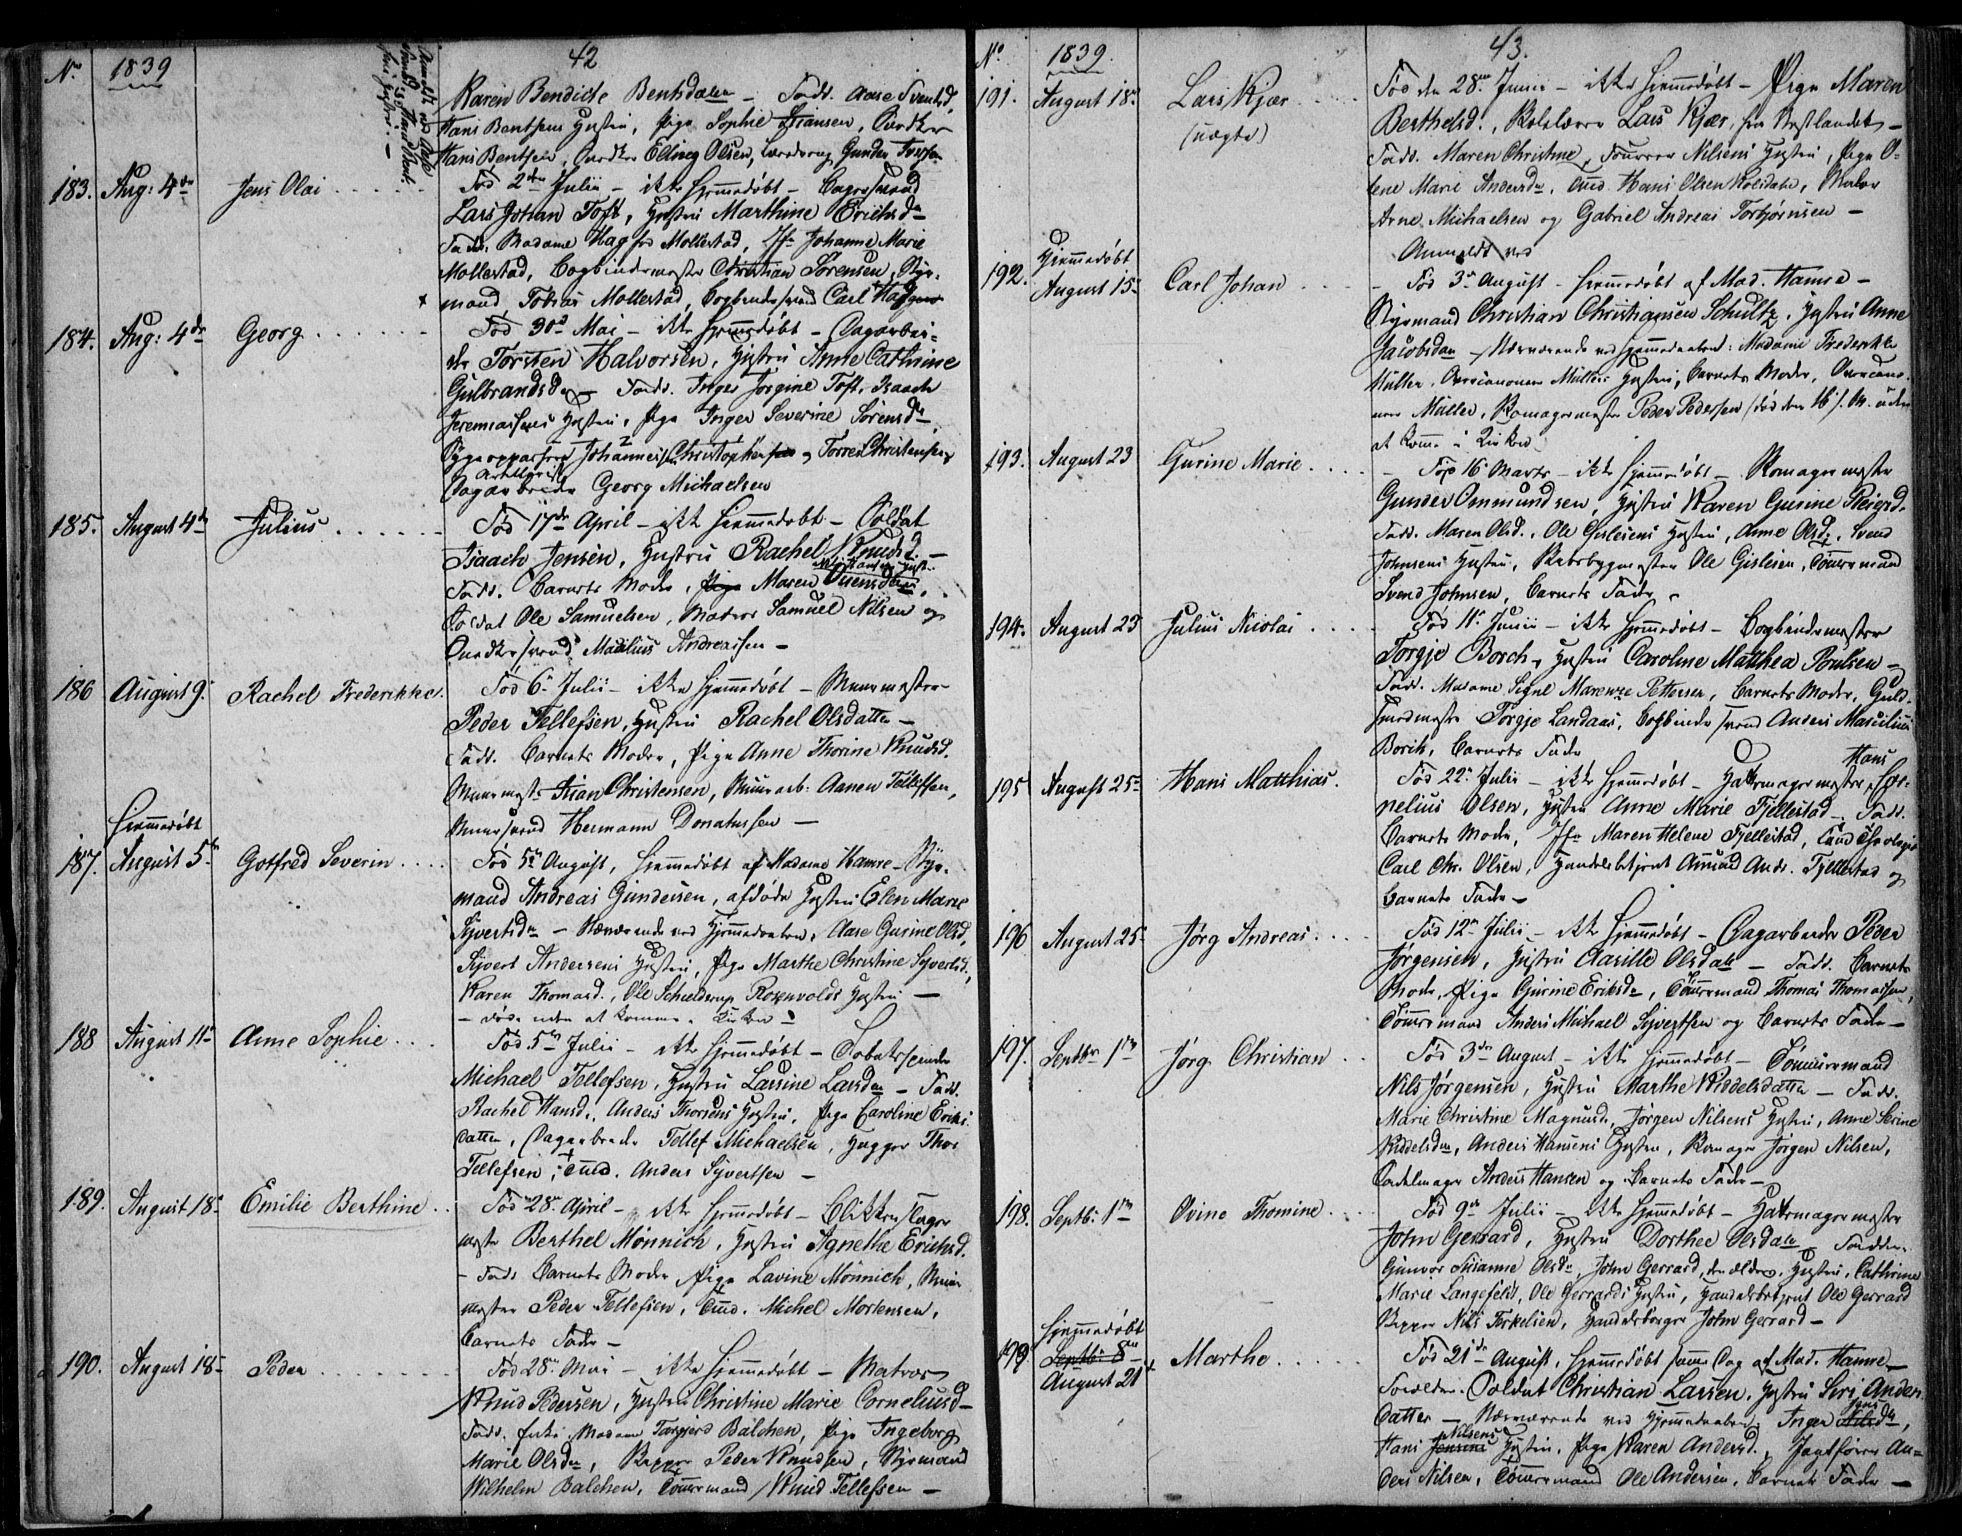 42
No 1839
Karen Bendicte Bentsdatter – Fadd. Aase Svends.
Hans Bentsens Hustru, Pige Sophie Hansen,
Hans Bentsen, Elling Olsen, Gunder Iversen
183. Aug: 4de Jens Olai
Fød 2den Julii – ikke hjemmedøbt – Bagersvend
Lars Johan Toft, Hustru Marthine Erichsd.
Fadd. Madame Hagfos Mollestad, Jfr Johanne Marie
Mollestad, Bogbindermester Christian Sørensen, Styr-
mand Tobias Mollestad, Bogbindersvend Carl
184. Aug: 4de Georg
Fød 30te Mai – ikke hjemmedøbt – Dagarbei-
der Torsten Halvorsen, Hustru Anne Cathrine
Gulbrandsdr – Fadd. Jørgine Toft, Isaach
Jeremiassens Hustru, Pige Inger Severine Sørensdr,
Sygeopvarter Johannes Christophersen, Torres Christensen,
Georg Michaelsen
185. August 4de Julius
Fød 17de April – ikke hjemmedøbt – Soldat
Isaach Jensen, Hustru Rachel Knudsd. –
Fadd. Barnets Moder, Pige Maren
Soldat Ole Samuelsen, Matros Samuel Nilsen og
Snedkersvend Maulius Andreassen –
186 August 9. Rachel Frederikke
Fød 6te Julii – ikke hjemmedøbt – Muurmester
Peder Tellefsen, Hustru Rachel Olsdatter –
Fadd. Barnets Moder, Pige Anne Thorine Knudsd.
Muurmester Stian Christensen, Muurarb. Aanen Tellefsen,
Muursvend Hermann Donatussen –
Hjemmedøbt
187. August 5te Gotfred Severin
Fød 5te August, hjemmedøbt af Madame Hamre – Styr-
mand Andreas Gundersen, afdøde Hustru Elen Marie
Syvertsdr – Nærværende ved Hjemmedaaben, Aase Gurine Olsd,
Syvert Andersens Hustru, Pige Marthe Christine Syvertsd.,
Karen Thomasd., Ole Schelderup Rosenvolds Hustru –
– døde uden at komme i Kirken –
188 August 11te Anne Sophie
Fød 5te Julii – ikke hjemmedøbt – Tobakspinder
Michael Tellefsen, Hustru Larsine Larsdr – Fadd.
Rachel Hansd., Anders Thorsens Hustru, Pige Caroline Eriks-
datter, Dagarbeider Tellef Michaelsen, Thor
Tellefsen, Tmd. Anders Syvertsen –
189. August 18de Emilie Berthine
Fød 28de April – ikke hjemmedøbt – Blikkenslager-
mester Berthel Mønnich, Hustru Agnethe Erichsd.
– Fadd. Barnets Moder, Pige Lavine Mønnich, Muur-
mester Peder Tellefsen, Tmd. Michel Mortensen,
Barnets Fader –
190. August 18de Peder
Fød 28de Mai – ikke hjemmedøbt – Matros
Knud Pedersen, Hustru Christine Marie Corneliusd –
Fadd. Enke Madam Targjerd Balchen, Pige Ingeborg
Marie Olsdr, Peder Knudsen, Styrmand
Wilhelm Balchen, Tømmermand Knud Tellefsen –
43.
No 1839
191. August 18de Lars Kjær
(uægte)
Fød den 28de Junii – ikke hjemmedøbt – Pige Maren
Berthelsd., Lars Kjær, fra Vestlandet –
Fadd. Maren Christine, Nilsens Hustru, Pige O-
lene Marie Andersdr, Tmd. Hans Olsen Kolsdale,
Arne Michaelsen og Gabriel Andreas Torbjørnsen –
Anmeldt ved
Hjemmedøbt
192. August 15de Carl Johan
– Fød 3de August – hjemmedøbt af Mad. Hamre –
Styrmand Christian Christiansen Schultz, Hustru Anne
Jacobsdatter – Nærværende ved Hjemmedaaben: Madame Frederikke
Müller, Müllers Hustru, Barnets Moder,
Müller, Skomagermester Peder Pedersen (død den 16de uden
at komme i Kirken)
193. August 23 Gurine Marie
– Fød 16de Marts – ikke hjemmedøbt – Skomagermester
Gunder Ommundsen, Hustru Karen Gurine Reiersd.
Fadd. Maren Olsd., Ole Gislesens Hustru, Anne Olsdr, Svend
Johnsens Hustru, Skibsbygmester Ole Gislesen, Tømmermand
Svend Johnsen, Barnets Fader –
194. August 23 Julius Nicolai
Fød 11te Junii – ikke hjemmedøbt – Bogbindermester
Torgje Borch, Hustru Caroline Matthea Poulsen –
Fadd. Madame Signe Marenze Pettersen, Barnets Moder, Guld-
smedmester Torgje Landaas, Bogbindersvend Anders Marcilius
Borch, Barnets Fader
195 August 25de Hans Matthias.
Fød 22de Julii – ikke hjemmedøbt – Hattemagermester Hans Cor-
nelius Olsen, Hustru Anne Marie Fjellestad – Fadd.
Barnets Moder, Jfr Maren Helene Fjellestad, Cand Theologiæ
Carl Chr. Olsen, Handelsbetjent Amund Andr. Fjellestad og
Barnets Fader –
196 August 25de Jørg Andreas
Fød 12te Julii – ikke hjemmedøbt – Dagarbeider Peder
Jørgensen, Hustru Aasille Olsdatter – Fadd. Barnets
Moder, Pige Gurine Eriksdr, Tømmermand Thomas Thomassen,
Tømmermand Anders Michael Syvertsen og Barnets Fader –
197. Septbr 1te Jørg Christian
Fød 3de August – ikke hjemmedøbt – Tømmermand
Nils Jørgensen, Hustru Marthe Kiddelsdatter – Fadd.
Marie Christine Magnusdr, Jørgen Nilsens Hustru, Anne Serine
Kiddelsdr, Anders Hansens Hustru, Skomager Jørgen Nilsen,
Sadelmager Anders Hansen og Barnets Fader –
198. Septb: 1te Ovine Thomine
Fød 9de Julii – ikke hjemmedøbt – Hattemagermester
John Gerrard, Hustru Dorthee Olsdatter – Faddere.
Gunvor Susanne Olsdr, John Gerrard, den ældres Hustru, Cathrine
Marie Langefeldt, Ole Gerrards Hustru, Handelsbetjent Ole Gerrard
Skipper Nils Terkelsen, Handelsborger John Gerrard –
Hjemmedøbt
199 Septb: 8de Marthe
August 21
Fød 21de August, hjemmedøbt samme Dag af Mad. Hamre –
Forældre: Soldat Christian Larsen, Hustru Siri Anders-
datter – Nærværende ved Hjemmedaaben, Inger Nilsdr Jensdr,
Hans Jensens Nilsens Hustru, Pige Karen Andersd., Jagtfører An-
ders Nilsen, Tømmermand Ole Andersen, Barnets Fader –